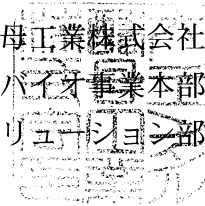 母工業株式会社
バイオ事業本部
リューション部